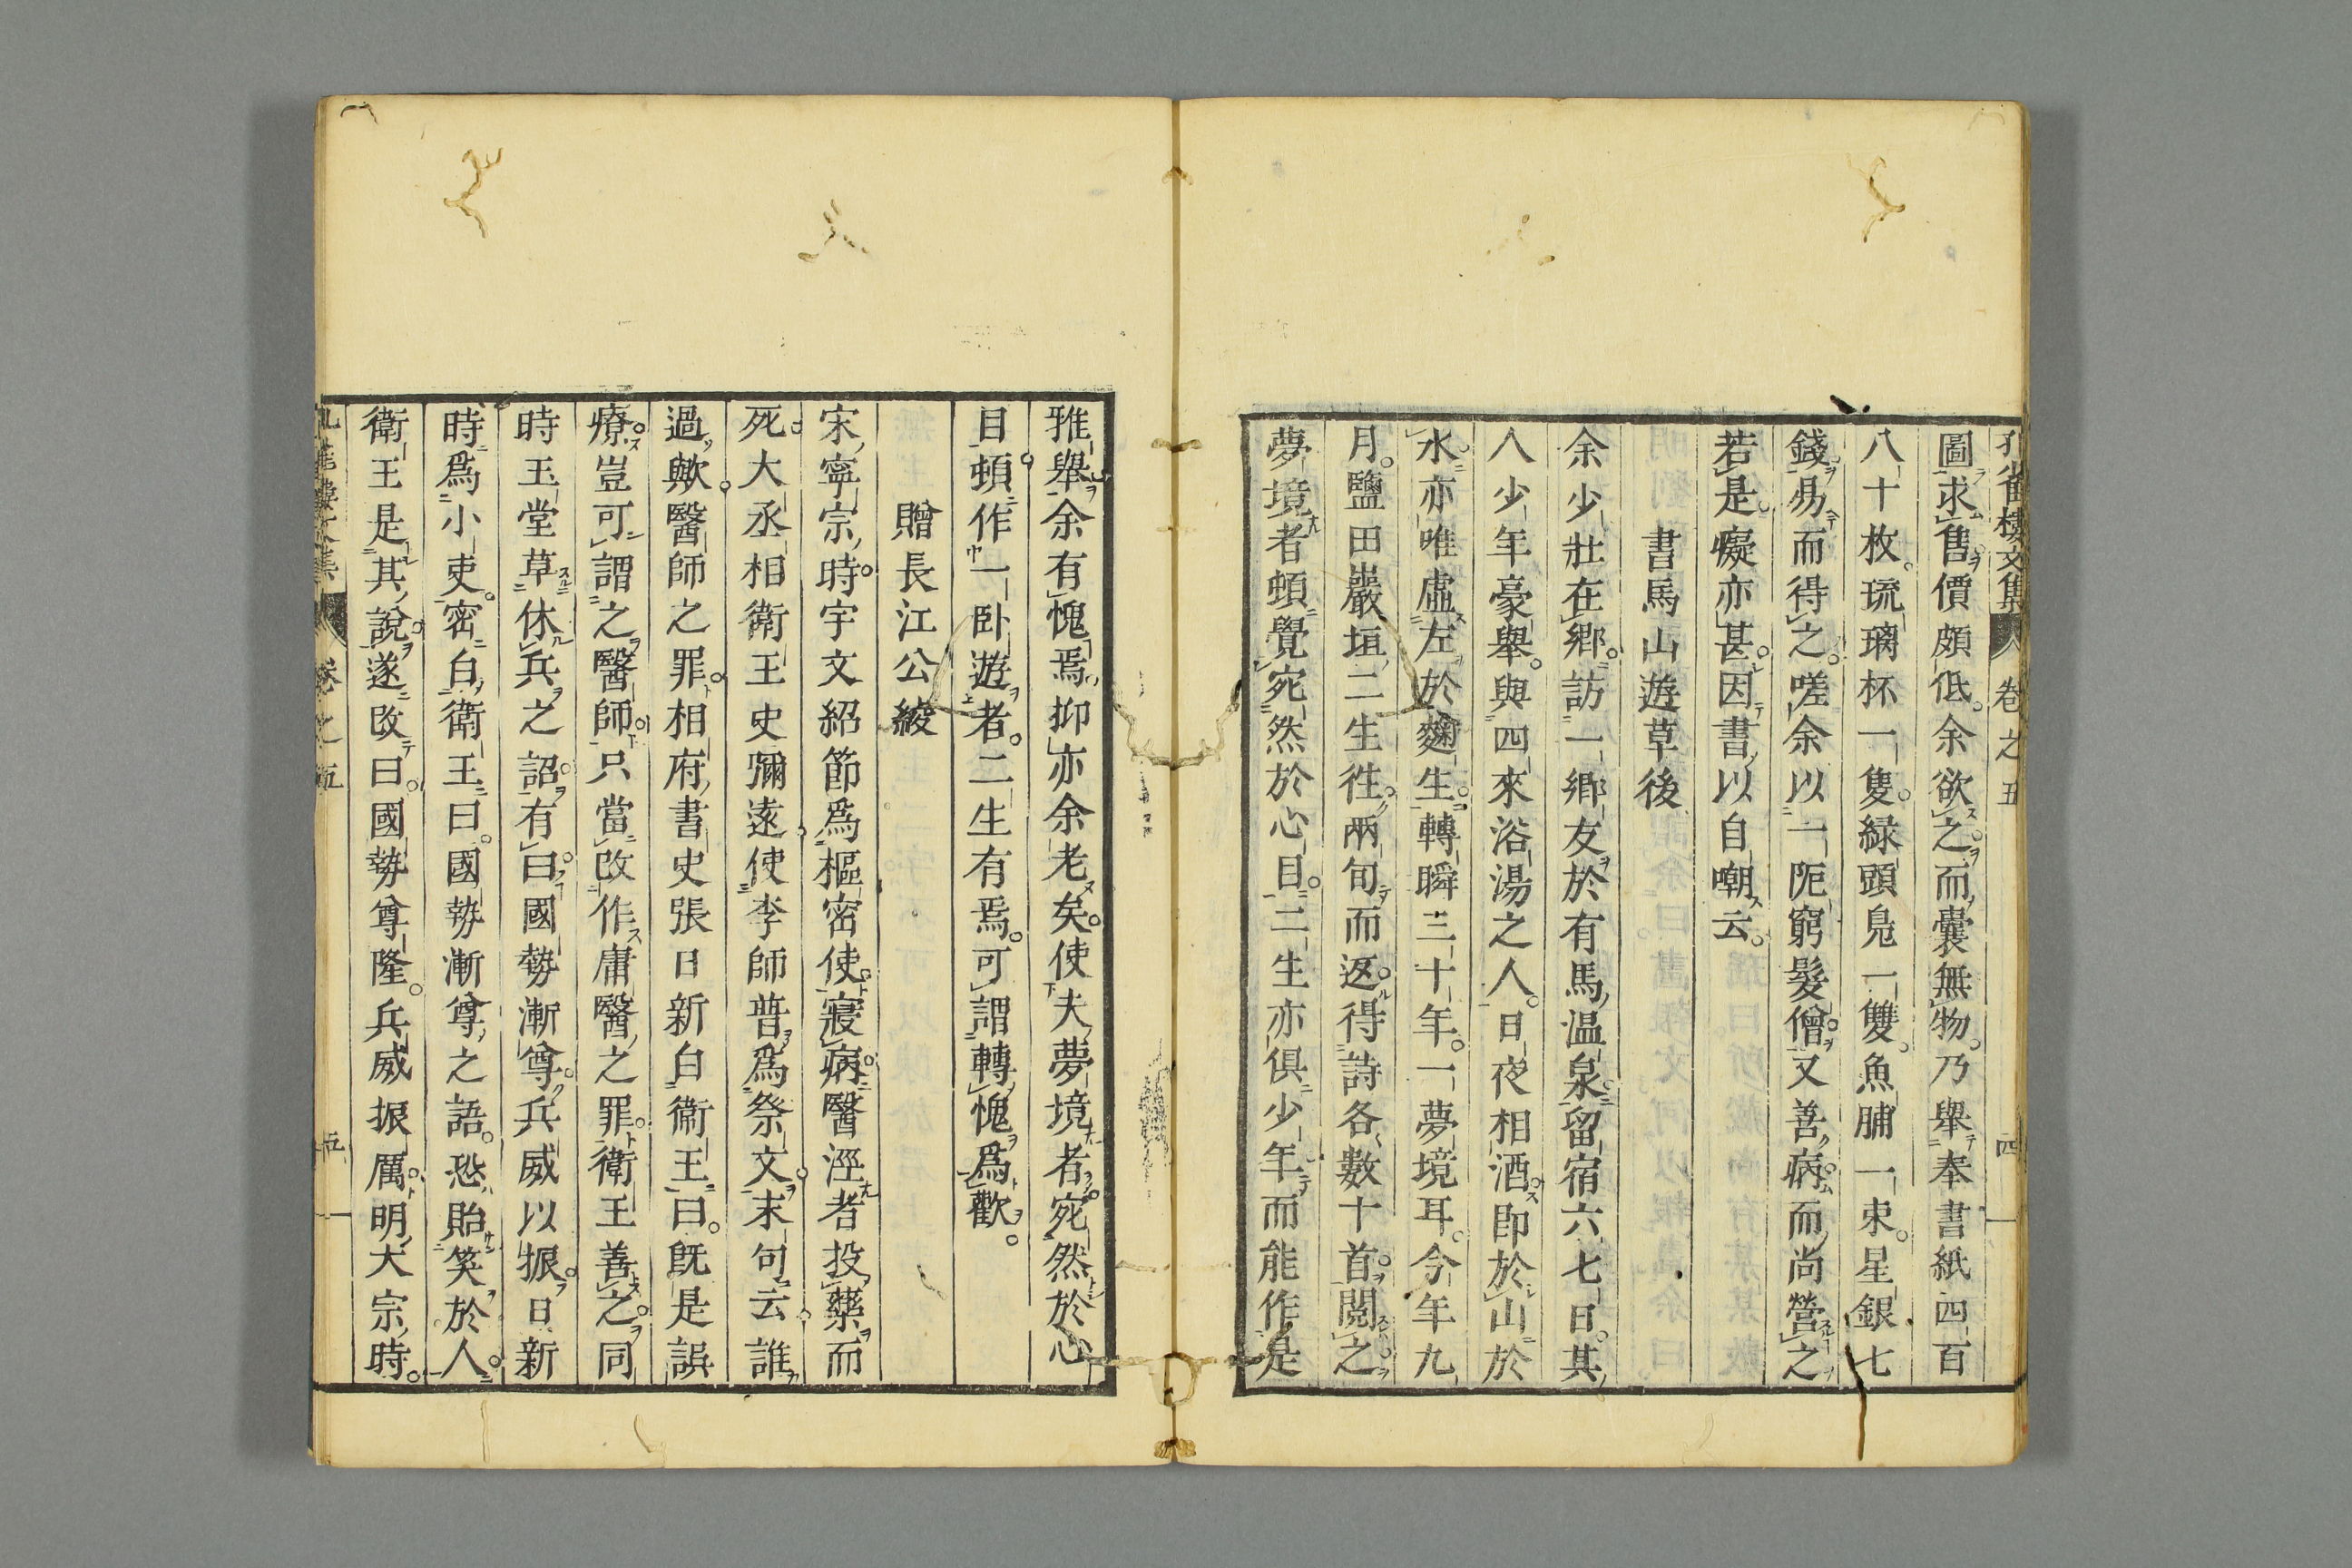 孔雀樓文集 卷之五 四
圖求售價頗低余欲之而囊無物乃舉奉書紙四百
八十枚琉璃杯一隻緑頭鳬一雙魚脯一束星銀七
錢易而得之嗟余以一阨窮髮僧又善病而尚營之
若是癡亦甚因書以自嘲云
書馬山遊草後
余少壯在郷訪一郷友於有馬温泉留宿六七日其
人少年豪舉與四來浴湯之人日夜相酒即於山於
水亦唯虛左於麴生轉瞬三十年一夢境耳今年九
月鹽田巖垣二生徃兩旬而返得詩各數十首閲之
夢境者頓覺宛然於心目二生亦俱少年而能作是
雅舉余有愧焉抑亦余老矣使夫夢境者宛然於心
目頓作一卧遊者二生有焉可謂轉愧爲歡
贈長江公綾
宋寧宗時宇文紹節爲樞密使寢病醫涇者投藥而
死大丞相衛王史彌遠使李師普爲祭文末句云誰
過歟醫師之罪相府書史張日新白衛王曰既是誤
療豈可謂之醫師只當改作庸醫之罪衛王善之同
時玉堂草休兵之詔有曰國勢漸尊兵威以振日新
時爲小吏密白衛王曰國勢漸尊之語恐貽笑於人
衛王是其說遂改曰國勢尊隆兵威振厲明大宗時
孔雀樓文集 卷之五 五